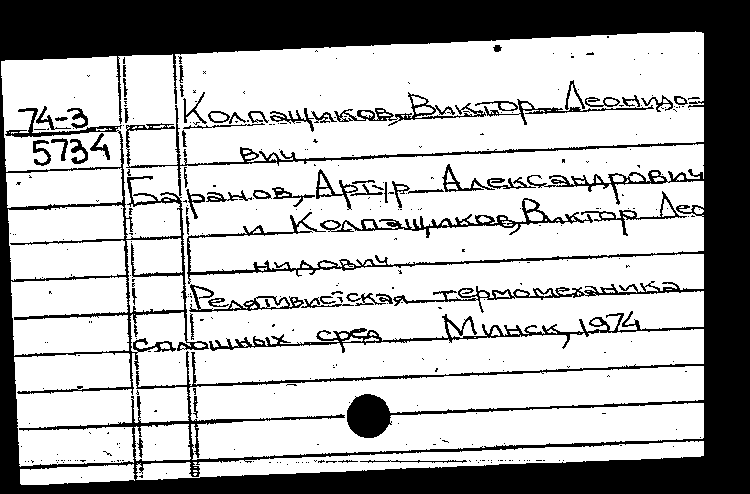 74-3
5734
Колпащиков, Виктор Леонидо-
вич.
Баранов, Артур Александрович
и Колпащиков, Виктор Лео
нидович.
Релятивистская термомеханика
сплошных сред Минск, 1974